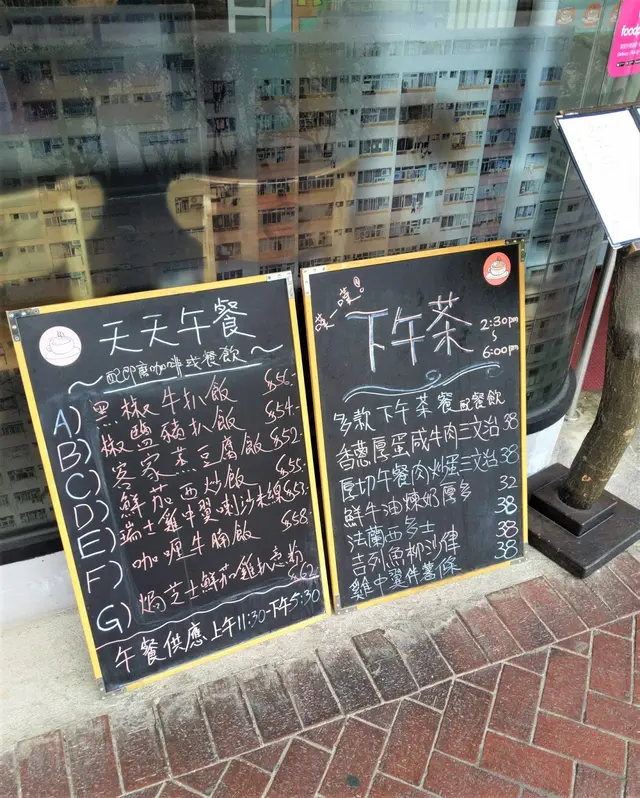 天天午餐
~配即磨咖啡或餐飲~
A) 黑椒牛扒飯 $56.-
B) 椒鹽豬扒飯 $54.-
C) 客家蒸豆腐飯 $52.-
D) 鮮茄西炒飯 $55.-
E) 瑞士雞中翼喇沙米線 $53.-
F) 咖喱牛腩飯 $68.-
G) 焗芝士鮮茄雞扒意粉 $62.-
午餐供應上午11:30-下午5:30
嘆一嘆
下午茶
2:30pm
~
6:00pm
多款下午茶餐配餐飲
香蔥厚蛋咸牛肉三文治 38
厚切午餐肉炒蛋三文治 38
鮮牛油煉奶厚多 32
法蘭西多士 38
吉列魚柳沙律 38
雞中翼伴薯條 38
foodp